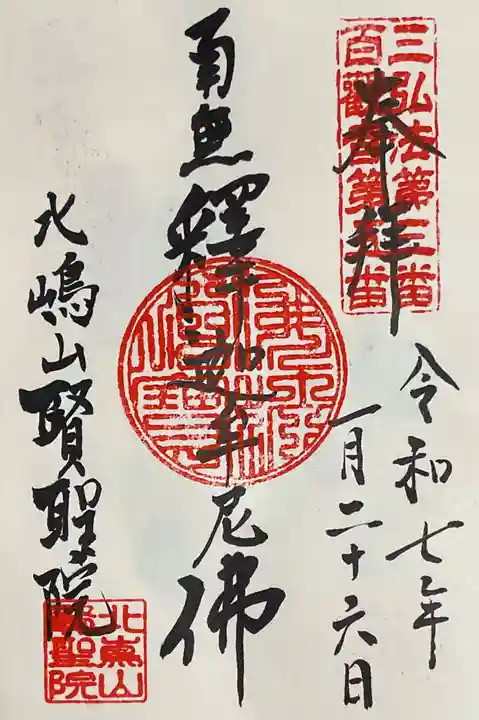 三弘法第三番
百観音第
奉拝
令和七年
一月二十六日
南無釋迦牟尼佛
北嶋山賢聖院
北嶌山
賢聖院